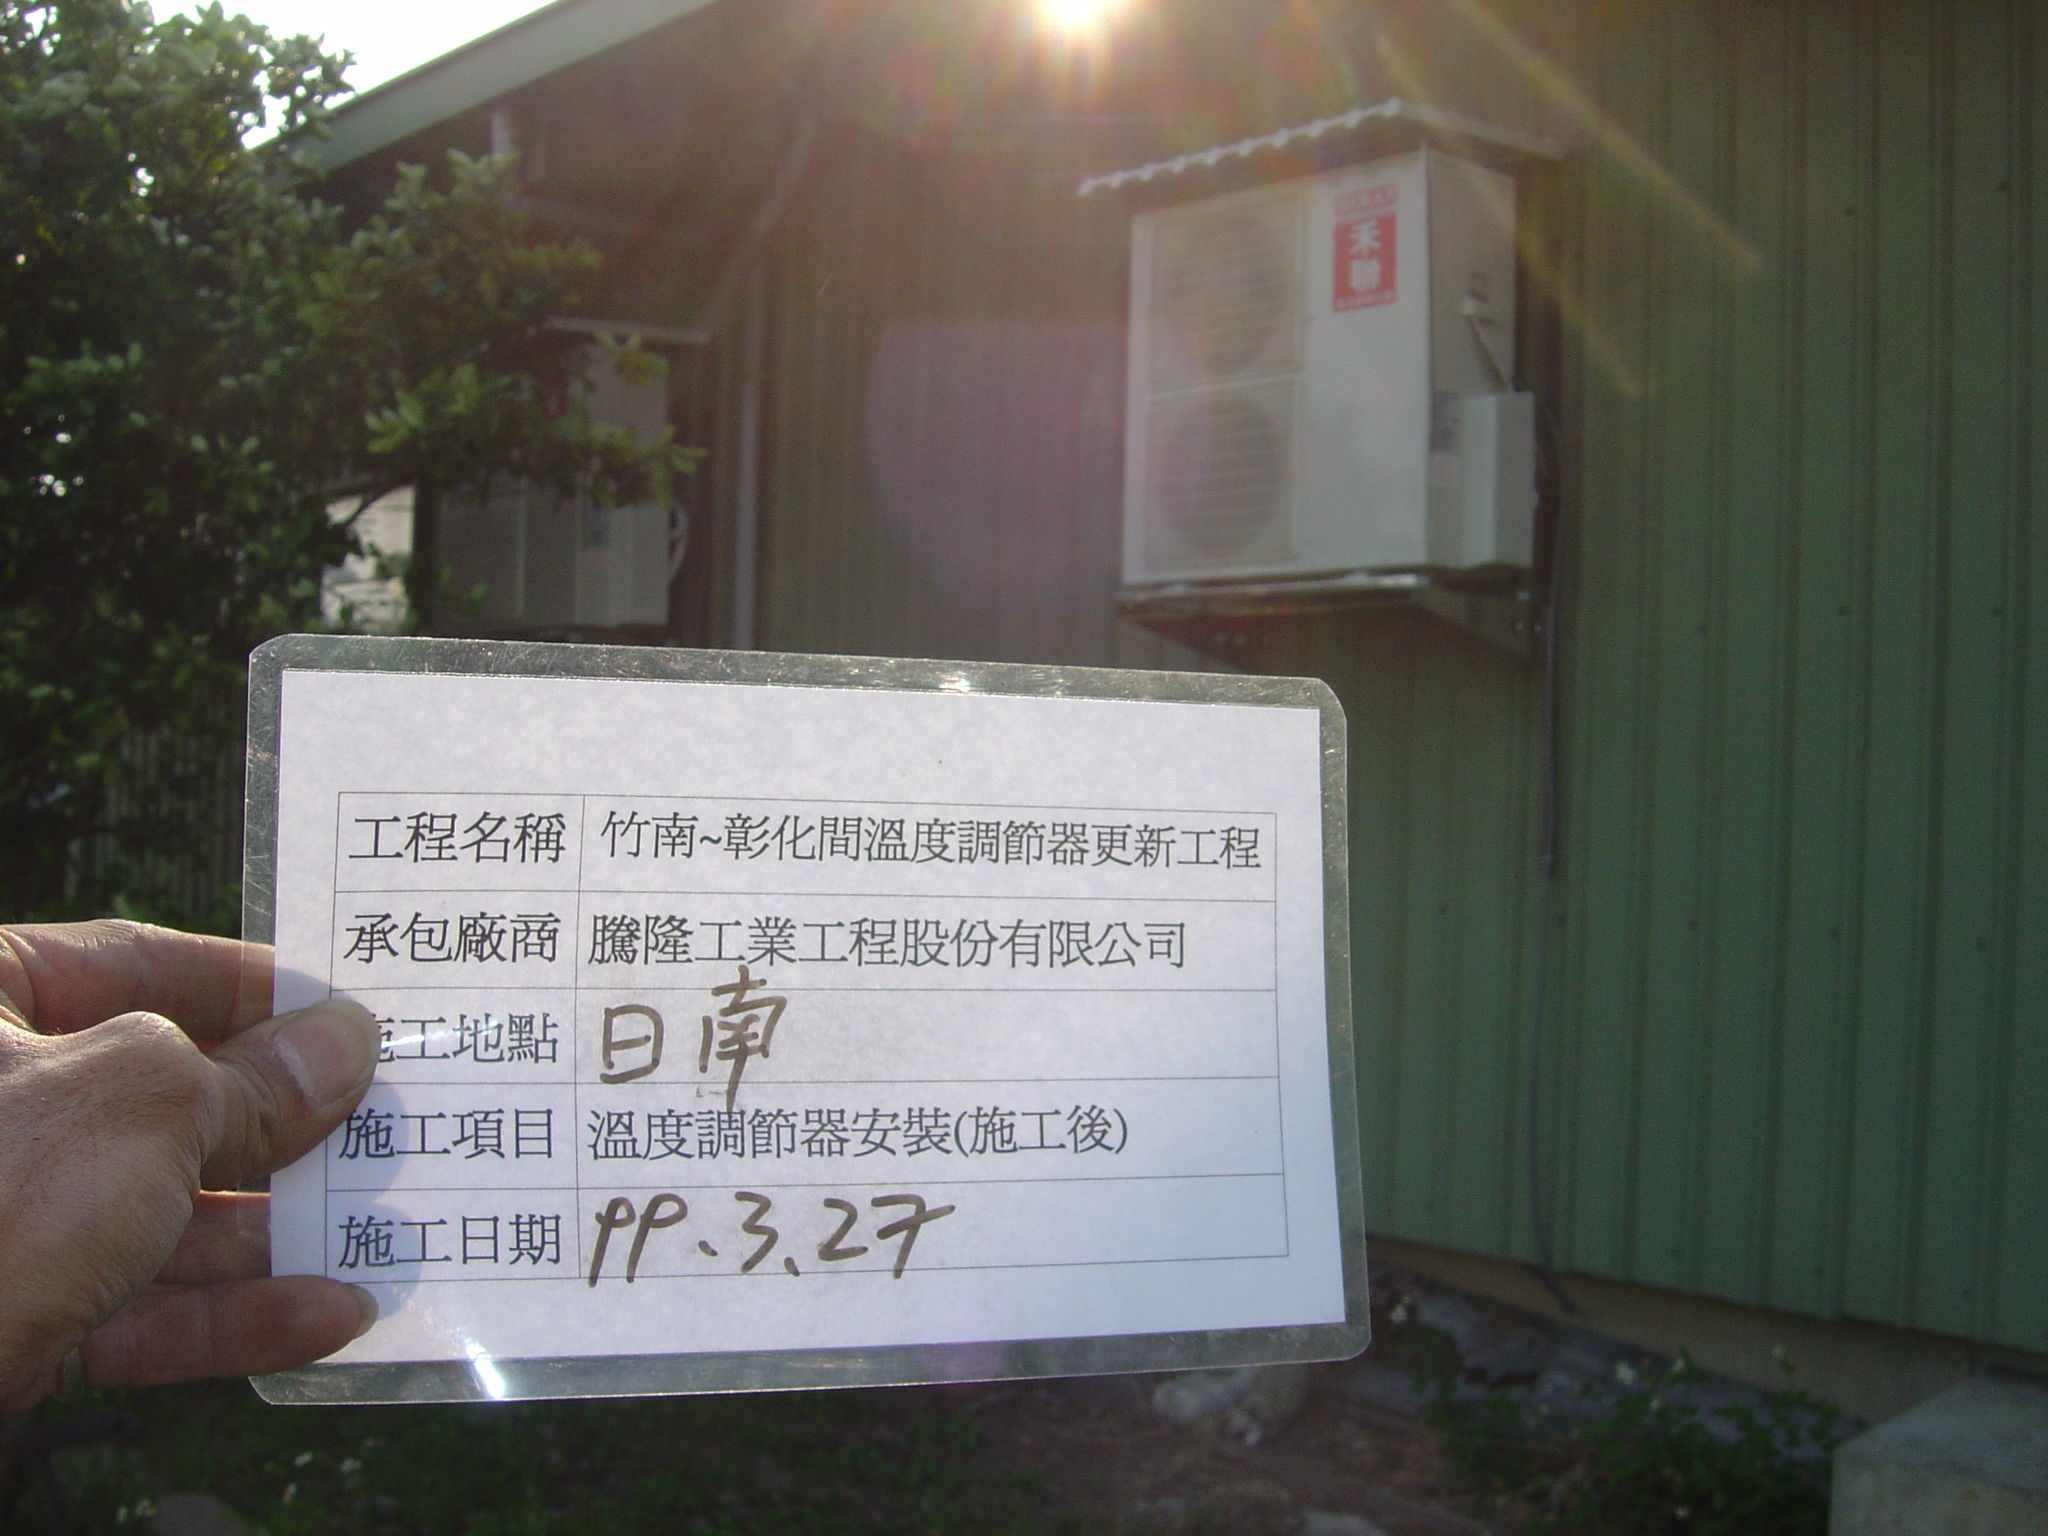 禾聯
工程名稱 竹南~彰化間溫度調節器更新工程
承包廠商 騰隆工業工程股份有限公司
施工地點 日南
施工項目 溫度調節器安裝(施工後)
施工日期 99.3.27